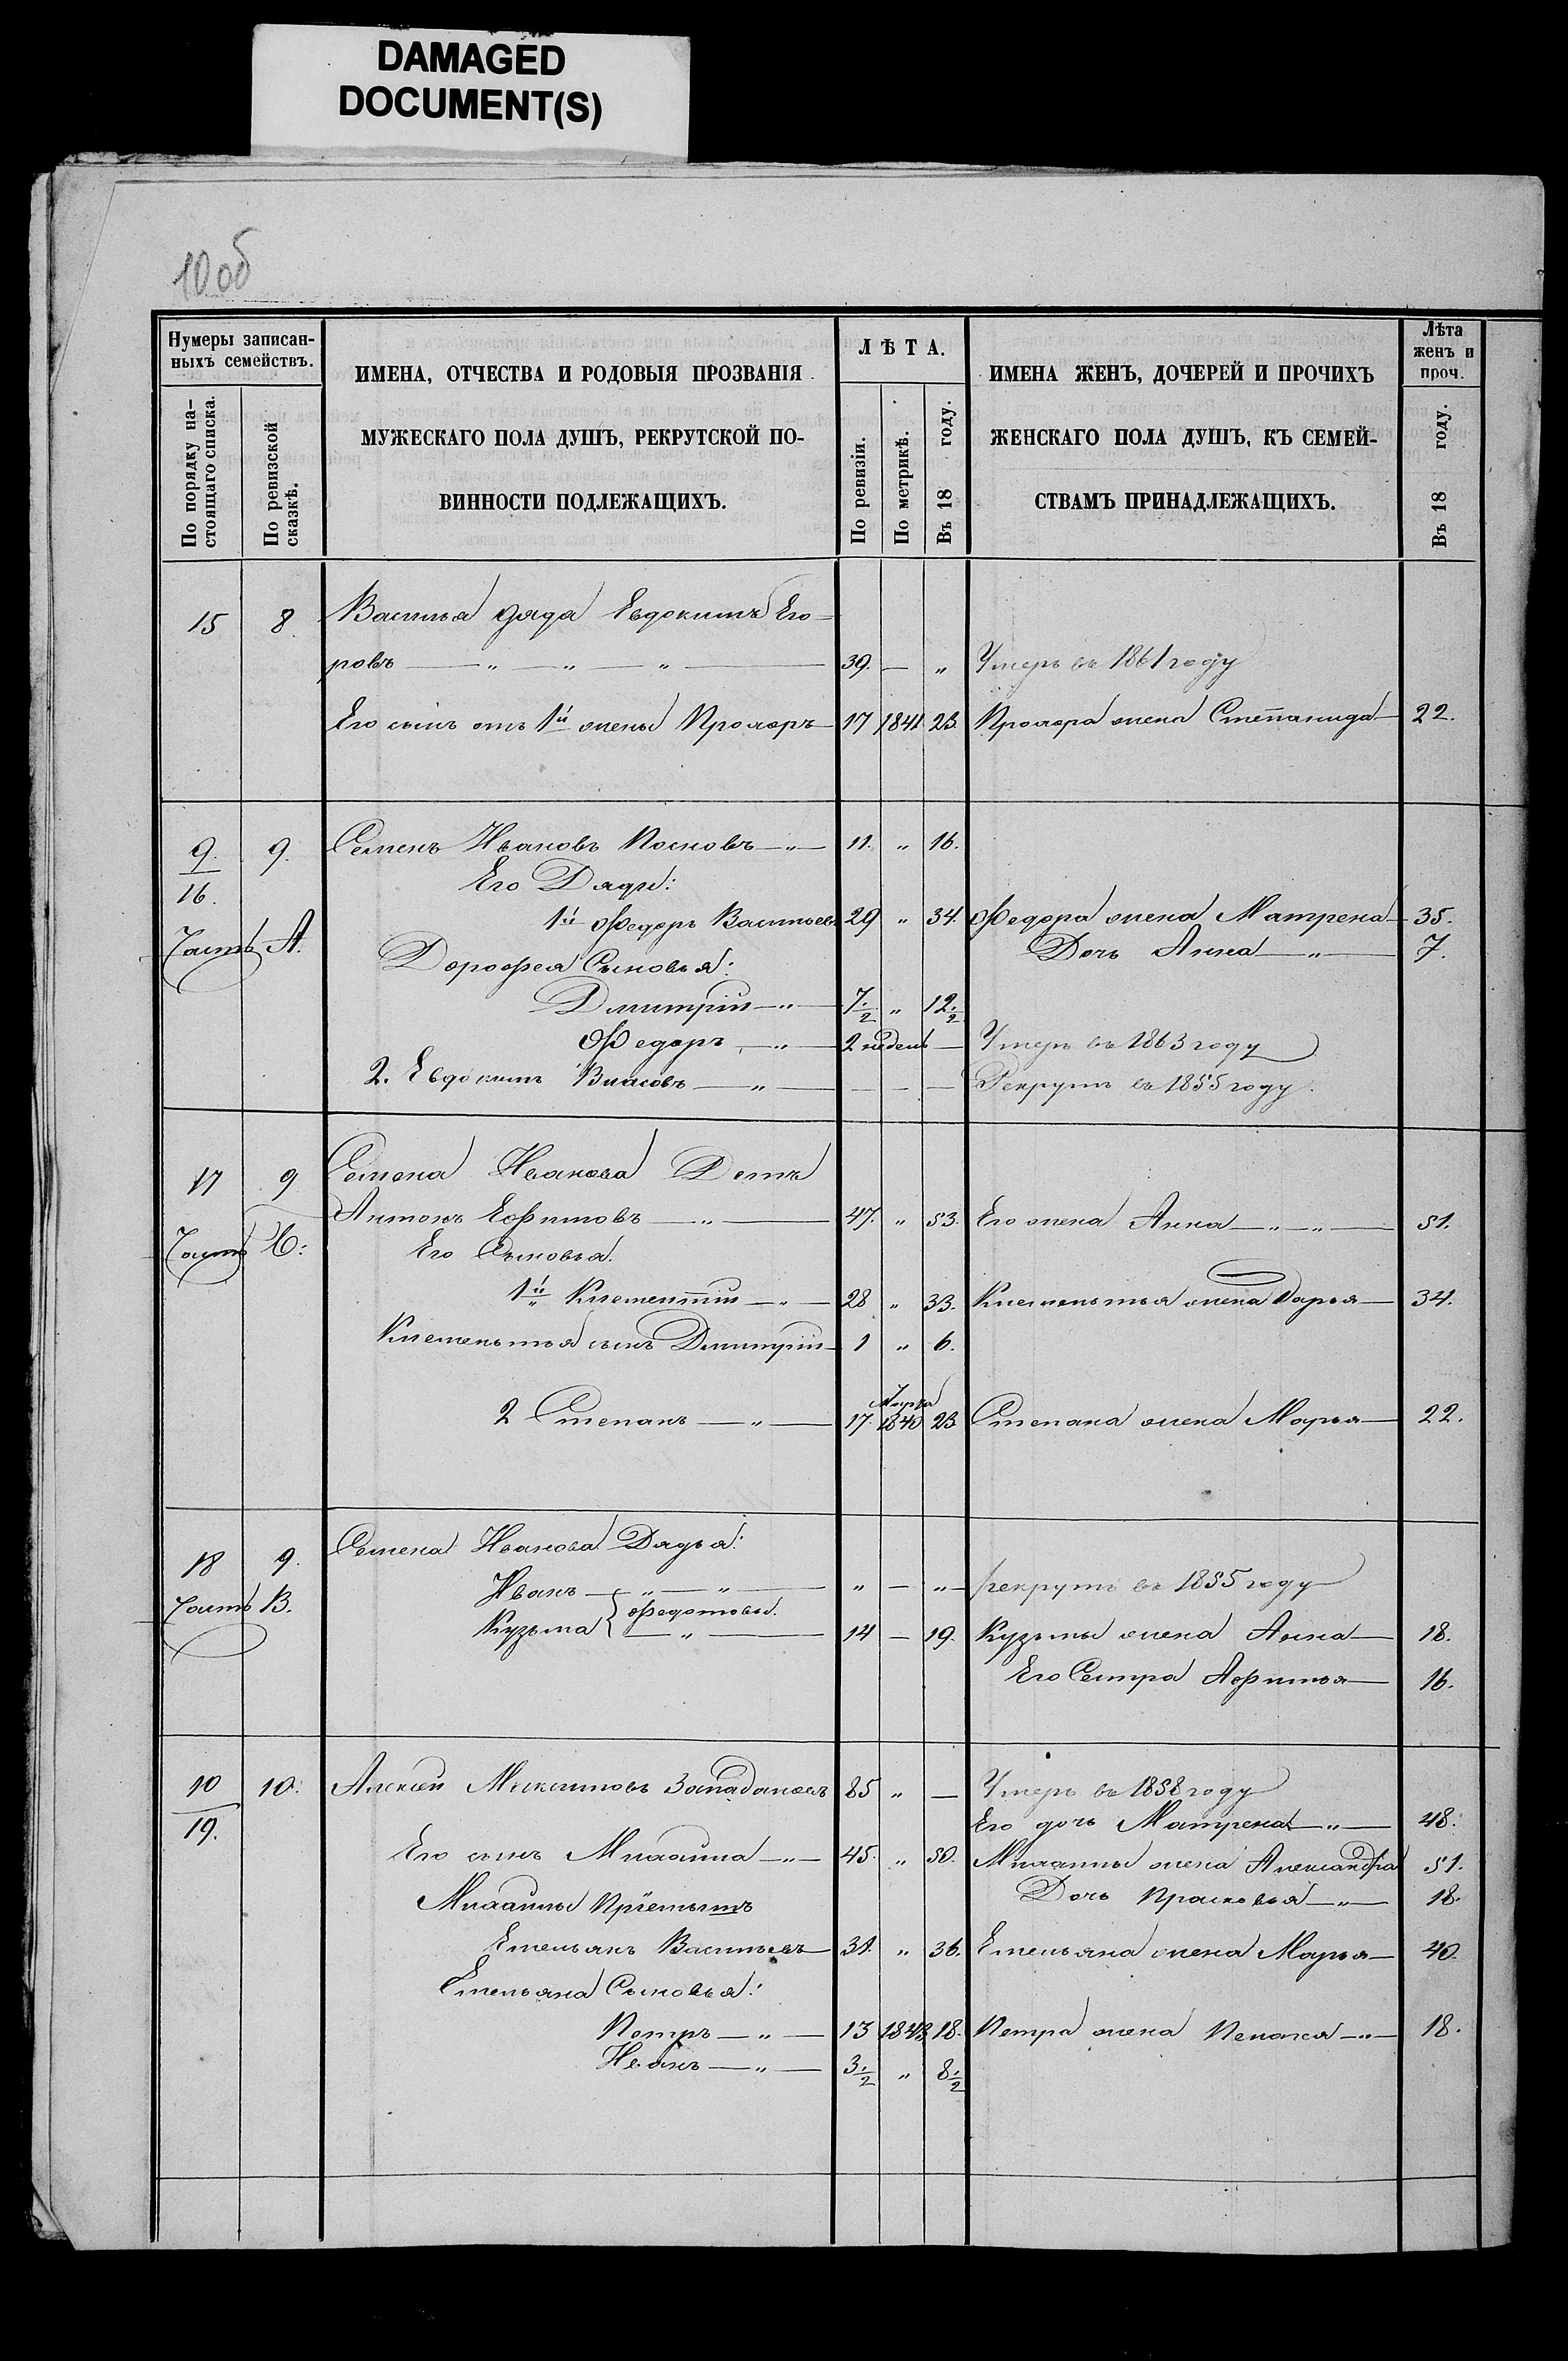 DAMAGED
DOCUMENT(S)
10 об
Нумеры записан-
ныхъ семействъ.
По порядку на-
стоящаго списка.
По ревизской
сказкѣ.
ИМЕНА, ОТЧЕСТВА И РОДОВЫЯ ПРОЗВАНІЯ
МУЖЕСКАГО ПОЛА ДУШЪ, РЕКРУТСКОЙ ПО-
ВИННОСТИ ПОДЛЕЖАЩИХЪ.
ЛѢТА.
По ревизіи.
По метрикѣ.
Въ 18 году.
ИМЕНА ЖЕНЪ, ДОЧЕРЕЙ И ПРОЧИХЪ
ЖЕНСКАГО ПОЛА ДУШЪ, КЪ СЕМЕЙ-
СТВАМЪ ПРИНАДЛЕЖАЩИХЪ.
Лѣта
женъ и
проч.
Въ 18 году.
15 8 Василья дядя Евдокимъ Его-
ровъ — „ — „ — „ — 39. — „ Умеръ въ 1861 году
Его сынъ отъ 1й жены Прохоръ — 17 1841 23. Прохора жена Степанида — 22.
9. 9. Семенъ Ивановъ Посновъ — „ — 11. „ 16.
16. Его Дяди:
1й Федоръ Васильевъ 29 „ 34. Федора жена Матрена — 35.
Часть А. Дочь Анна — „ — 7.
Дорофея Сыновья:
Дмитрій — „ — 7 1/2 „ 12 1/2
Федоръ — „ — 2 недель — Умеръ въ 1863 году
2. Евдокимъ Власовъ — „ — — — — Рекрутъ въ 1855 году.
17 9 Семена Иванова
Антонъ Ефимовъ — „ — 47. „ 53. Его жена Анна — „ — „ — 51.
Часть Б: Его Сыновья.
1й Клементий — „ — 28 „ 33. Клементья жена Дарья — 34.
Клементья сынъ Дмитрій — 1 „ 6.
2 Степанъ — „ — 17. 1840 23 Степана жена Марья — 22.
18 9. Семена Иванова Дядья:
Иванъ — „ — „ — „ — „ — рекрутъ въ 1855 году
Часть В. Федотовы.
Кузьма — „ — 14 — 19. Кузьмы жена Анна — 18.
Его Сестра Афимья — 16.
10 10. Алексей Максимовъ 85 „ — Умеръ въ 1858 году
19. Его дочь Матрена — „ — 48.
Его сынъ Михаила — „ — 45. „ 50. Михаилы жена Александра 51.
Михаилы Пріемышъ Дочь Прасковья — „ — 18.
Емельянъ Васильевъ — 31. „ 36. Емельяна жена Марья — 40.
Емельяна Сыновья:
Петръ — „ — 13 1843 18. Петра жена Пелагея — „ — 18.
Иванъ — „ — 3 1/2 „ 8 1/2